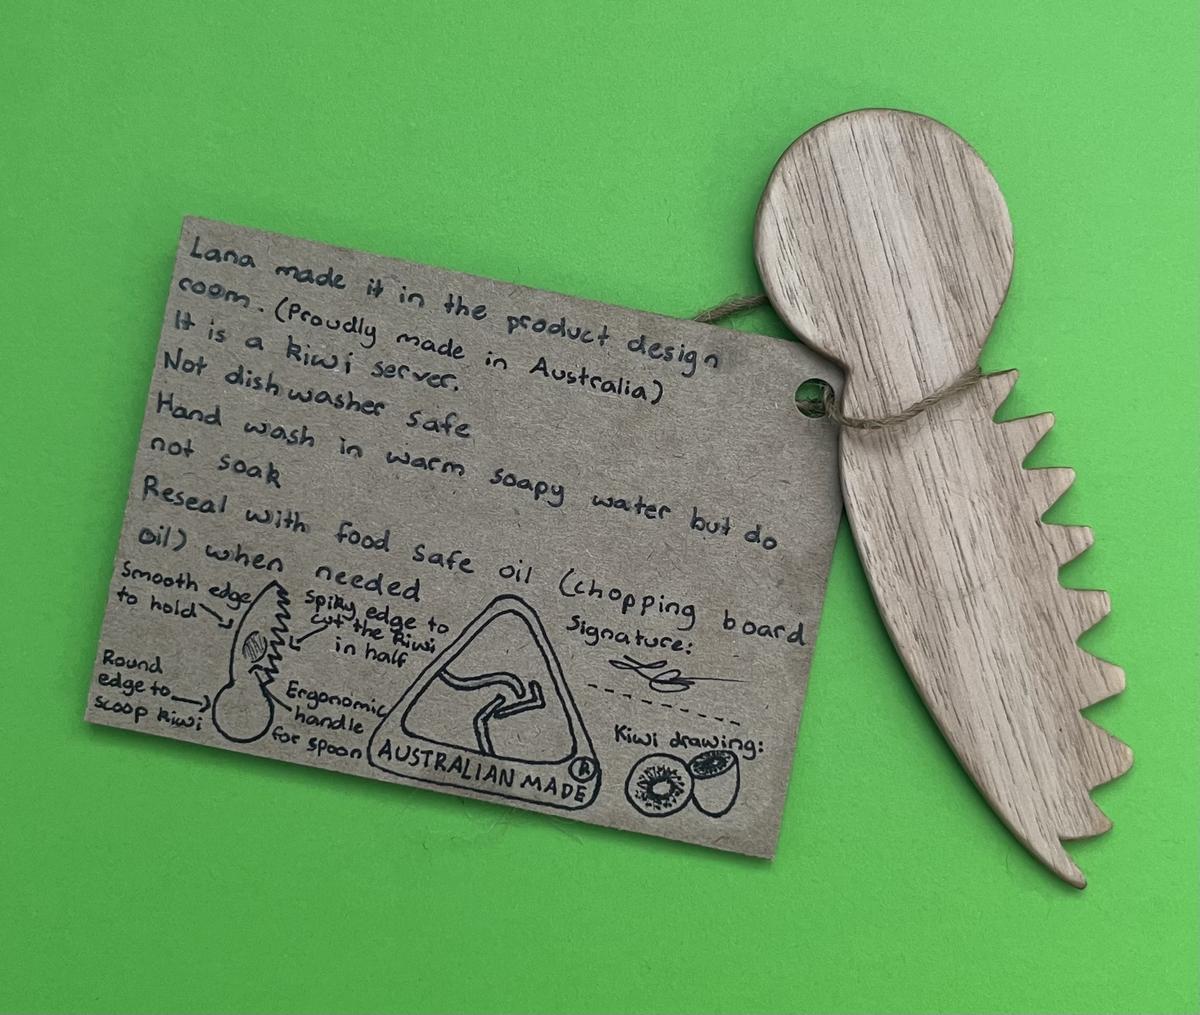 Lana made it in the product design
room. (Proudly made in Australia)
It is a kiwi server.
Not dishwasher safe
Hand wash in warm soapy water but do
not soak
Reseal with food safe oil (chopping board
oil) when needed
Smooth edge
to hold
Spiky edge to
cut the kiwi
in half
Round
edge to
scoop kiwi
Ergonomic
handle
for spoon
AUSTRALIAN MADE
R
Signature:
Kiwi drawing: